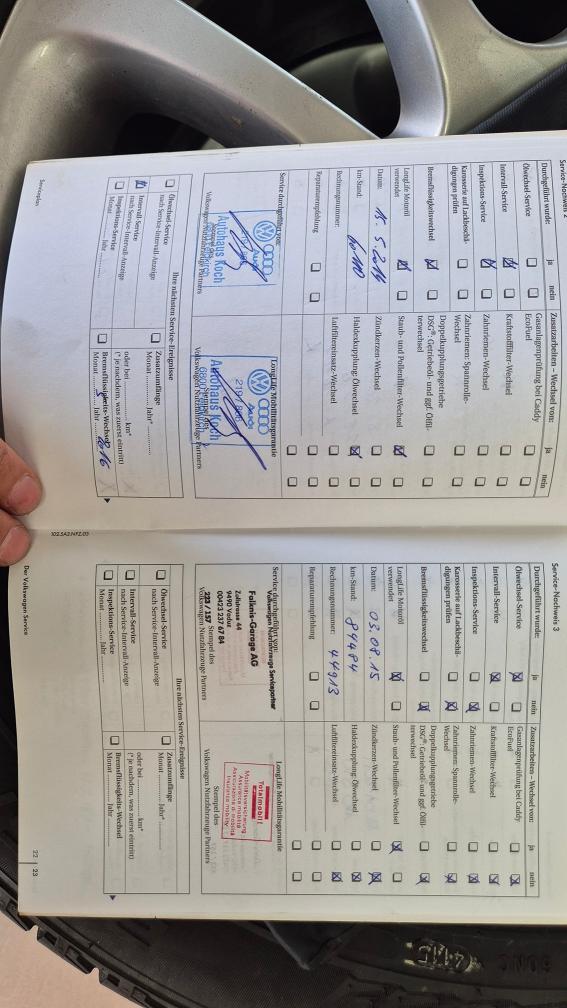 Service-Nachweis 2
Durchgeführt wurde: ja nein
Ölwechsel-Service
Intervall-Service
Inspektions-Service
Karosserie auf Lackbeschä-
digungen prüfen
Bremsflüssigkeitswechsel
LongLife Motoröl
verwendet
Datum:
km-Stand:
Rechnungsnummer:
Reparaturempfehlung
Service durchgeführt von:
Autohaus Koch
Volkswagen Nutzfahrzeuge Partners
Zusatzarbeiten – Wechsel von: ja nein
Gasanlagenprüfung bei Caddy
EcoFuel
Kraftstofffilter-Wechsel
Zahnriemen-Wechsel
Zahnriemen: Spannrolle-
Wechsel
Doppelkupplungsgetriebe
DSG®: Getriebeöl- und ggf. Ölfil-
terwechsel
Staub- und Pollenfilter-Wechsel
Zündkerzen-Wechsel
Haldexkupplung: Ölwechsel
Luftfiltereinsatz-Wechsel
LongLife Mobilitätsgarantie
Autohaus Koch
Volkswagen Nutzfahrzeuge Partners
Ihre nächsten Service-Ereignisse
Ölwechsel-Service
nach Service-Intervall-Anzeige
Intervall-Service
nach Service-Intervall-Anzeige
Inspektions-Service
Monat Jahr
Zusatzumfänge
Monat Jahr*
oder bei km*
(* je nachdem, was zuerst eintritt)
Bremsflüssigkeits-Wechsel
Monat Jahr 2016
Serviceplan
102.5A2.NFZ.03
Service-Nachweis 3
Durchgeführt wurde: ja nein
Ölwechsel-Service
Intervall-Service
Inspektions-Service
Karosserie auf Lackbeschä-
digungen prüfen
Bremsflüssigkeitswechsel
LongLife Motoröl
verwendet
Datum: 03.08.15
km-Stand: 89484
Rechnungsnummer: 44913
Reparaturempfehlung
Service durchgeführt von:
Volkswagen Nutzfahrzeuge Servicepartner
Falknis-Garage AG
Zollstrasse 44
9490 Vaduz
00423 237 67 84
237 / 157
Stempel des
Volkswagen Nutzfahrzeuge Partners
Zusatzarbeiten – Wechsel von: ja nein
Gasanlagenprüfung bei Caddy
EcoFuel
Kraftstofffilter-Wechsel
Zahnriemen-Wechsel
Zahnriemen: Spannrolle-
Wechsel
Doppelkupplungsgetriebe
DSG®: Getriebeöl- und ggf. Ölfil-
terwechsel
Staub- und Pollenfilter-Wechsel
Zündkerzen-Wechsel
Haldexkupplung: Ölwechsel
Luftfiltereinsatz-Wechsel
LongLife Mobilitätsgarantie
Totalmobil!
Mobilitätsversicherung
Assurance mobilité
Assicurazione di mobilità
Insurance mobility
Stempel des
Volkswagen Nutzfahrzeuge Partners
Ihre nächsten Service-Ereignisse
Ölwechsel-Service
nach Service-Intervall-Anzeige
Intervall-Service
nach Service-Intervall-Anzeige
Inspektions-Service
Monat Jahr
Zusatzumfänge
Monat Jahr*
oder bei km*
(* je nachdem, was zuerst eintritt)
Bremsflüssigkeits-Wechsel
Monat Jahr
Der Volkswagen Service
22 23